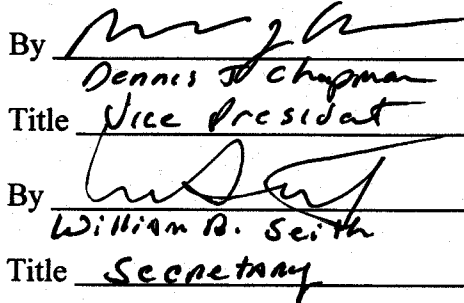 By
Dennis J Chapman
Title Vice President
By
William A. Seith
Title Secretary